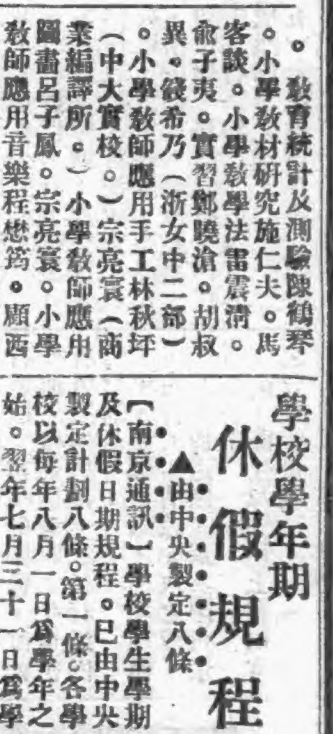 。教育統計及測驗陳鶴琴
。小學教材研究施仁夫。馬
客談。小學教學法雷震清。
俞子夷。實習鄭曉滄。胡叔
異。錢希乃（浙女中二部）
。小學教師應用手工林秋坪
（中大實校。）宗亮寰（商
業編譯所。）小學教師應用
圖畫呂子鳳。宗亮寰。小學
教師應用音樂程懋筠。顧西
學校學年期
休假規程
▲由中央製定八條
〔南京通訊〕學校學生學期
及休假日期規程。已由中央
製定計劃八條。第一條。各學
校以每年八月一日爲學年之
始。翌年七月三十一日爲學